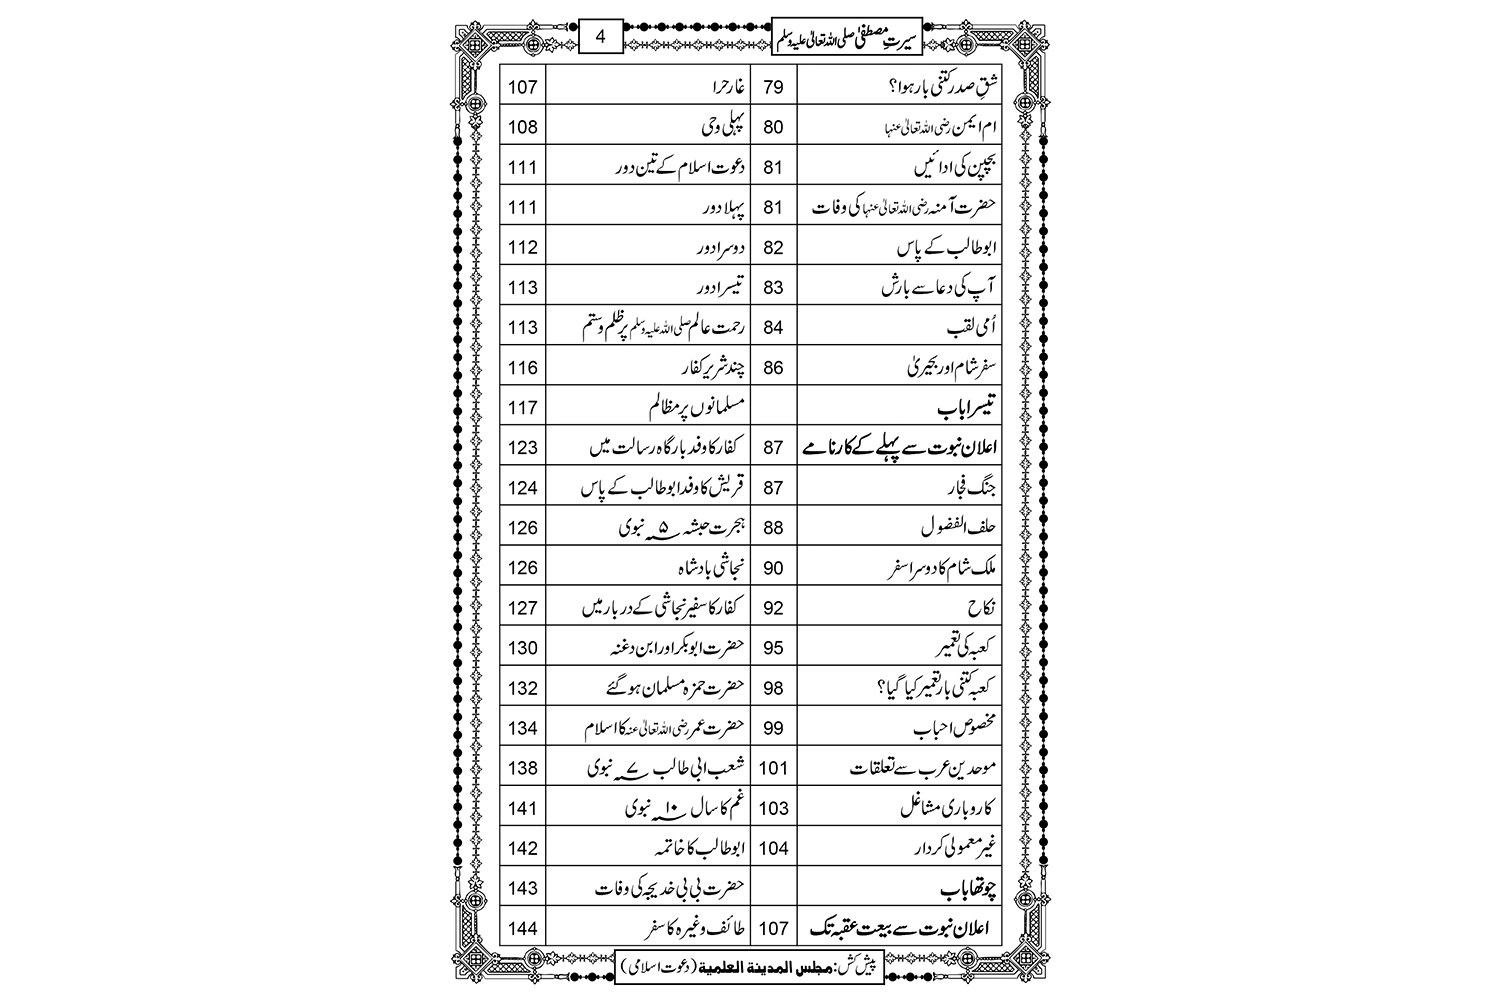 سیرتِ مصطفیٰ صلی اللہ تعالیٰ علیہ وسلم
4
شقِ صدر کتنی بار ہوا؟ 79
ام ایمن رضی اللہ تعالیٰ عنہا 80
بچپن کی ادائیں 81
حضرت آمنہ رضی اللہ تعالیٰ عنہا کی وفات 81
ابو طالب کے پاس 82
آپ کی دعا سے بارش 83
اُمی لقب 84
سفر شام اور بحیریٰ 86
تیسرا باب
اعلان نبوت سے پہلے کے کارنامے 87
جنگ فجار 87
حلف الفضول 88
ملک شام کا دوسرا سفر 90
نکاح 92
کعبہ کی تعمیر 95
کعبہ کتنی بار تعمیر کیا گیا؟ 98
مخصوص احباب 99
موحدین عرب سے تعلقات 101
کاروباری مشاغل 103
غیر معمولی کردار 104
چوتھا باب
اعلان نبوت سے بیعت عقبہ تک 107
غار حرا 107
پہلی وحی 108
دعوت اسلام کے تین دور 111
پہلا دور 111
دوسرا دور 112
تیسرا دور 113
رحمت عالم صلی اللہ علیہ وسلم پر ظلم و ستم 113
چند شریر کفار 116
مسلمانوں پر مظالم 117
کفار کا وفد بارگاہ رسالت میں 123
قریش کا وفد ابو طالب کے پاس 124
ہجرت حبشہ ۵؁ نبوی 126
نجاشی بادشاہ 126
کفار کا سفیر نجاشی کے دربار میں 127
حضرت ابوبکر اور ابن دغنہ 130
حضرت حمزہ مسلمان ہو گئے 132
حضرت عمر رضی اللہ تعالیٰ عنہ کا اسلام 134
شعب ابی طالب ۷؁ نبوی 138
غم کا سال ۱۰؁ نبوی 141
ابو طالب کا خاتمہ 142
حضرت بی بی خدیجہ کی وفات 143
طائف وغیرہ کا سفر 144
پیش کش: مجلس المدینة العلمیة (دعوت اسلامی)